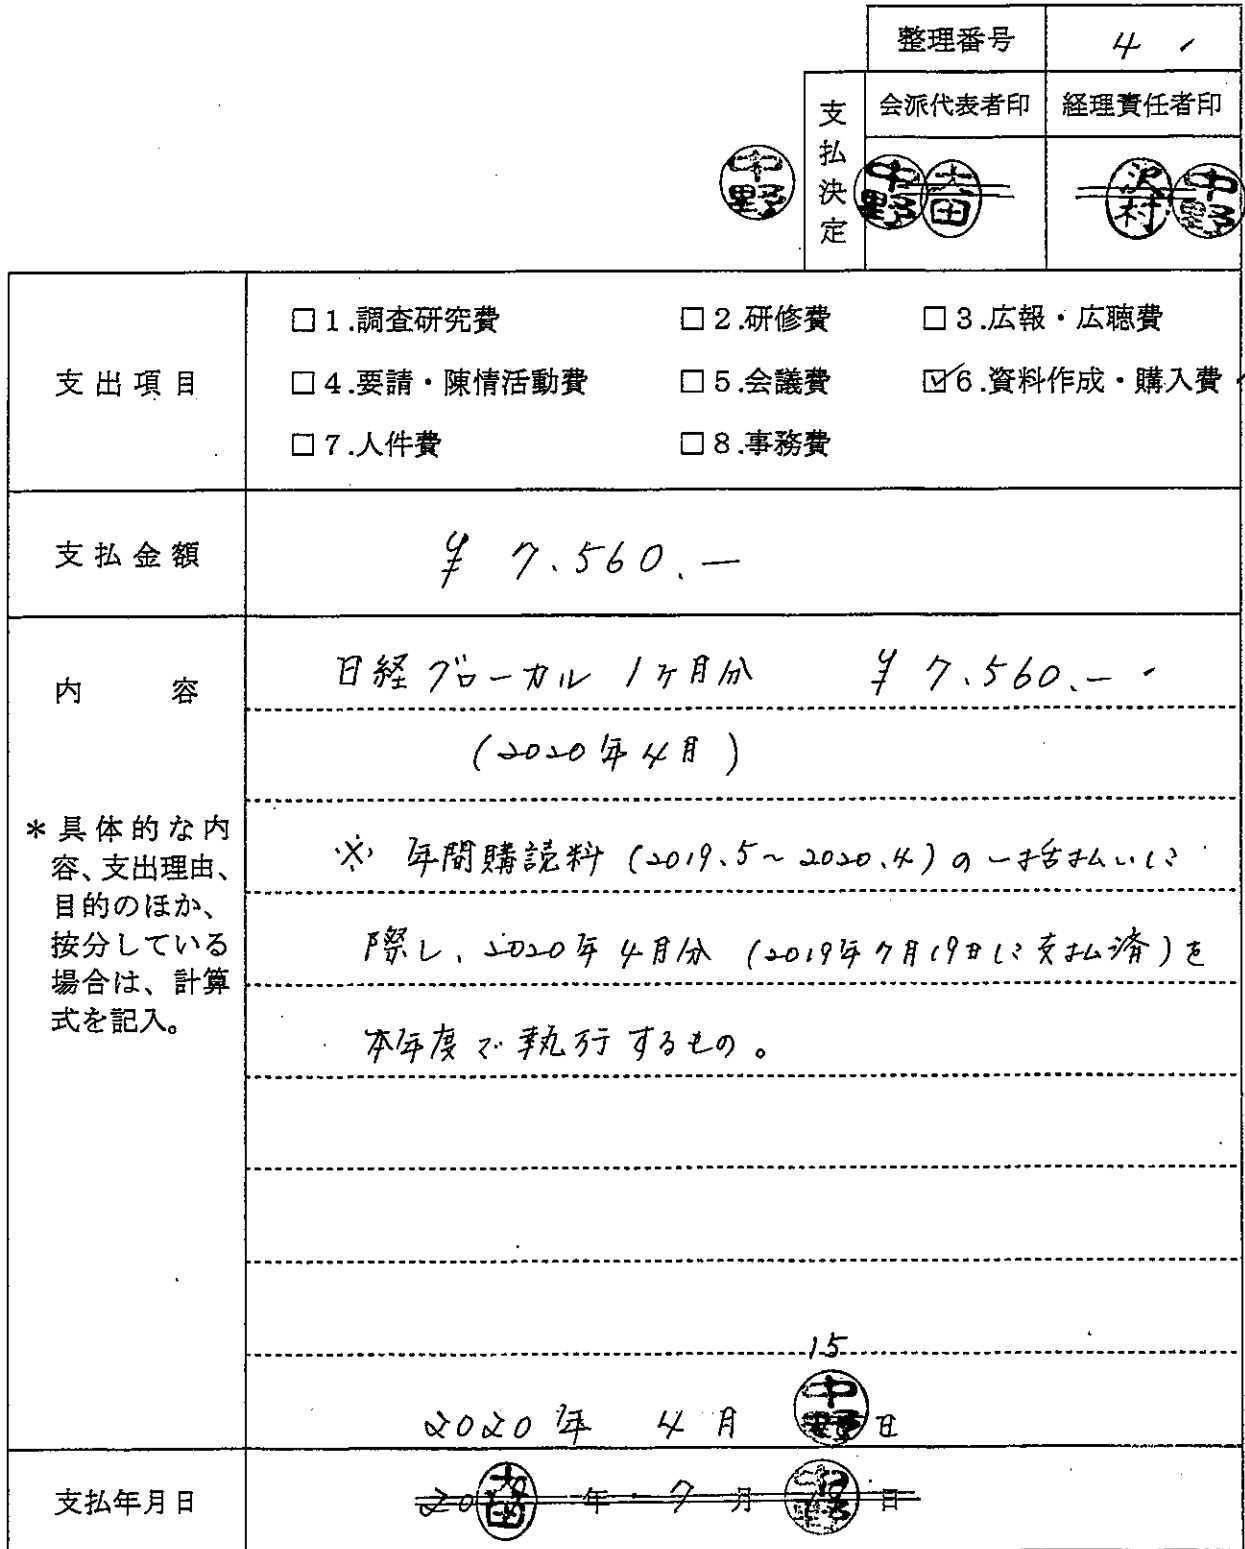 整理番号 4
支払決定 会派代表者印 経理責任者印
中野 中野 大田 沢村 中野
支出項目
□1.調査研究費 □2.研修費 □3.広報・広聴費
□4.要請・陳情活動費 □5.会議費 ☑6.資料作成・購入費
□7.人件費 □8.事務費
支払金額 ¥ 7.560.―
内容 日経グローカル 1ヶ月分 ¥ 7.560.-
(2020年4月)
*具体的な内容、支出理由、目的のほか、按分している場合は、計算式を記入。
※ 年間購読料 (2019.5~2020.4) の一括払いに
際し、2020年4月分 (2019年7月19日に支払済) を
本年度で執行するもの。
15
2020年 4月 中野 日
支払年月日 20 大田 年 7月 日